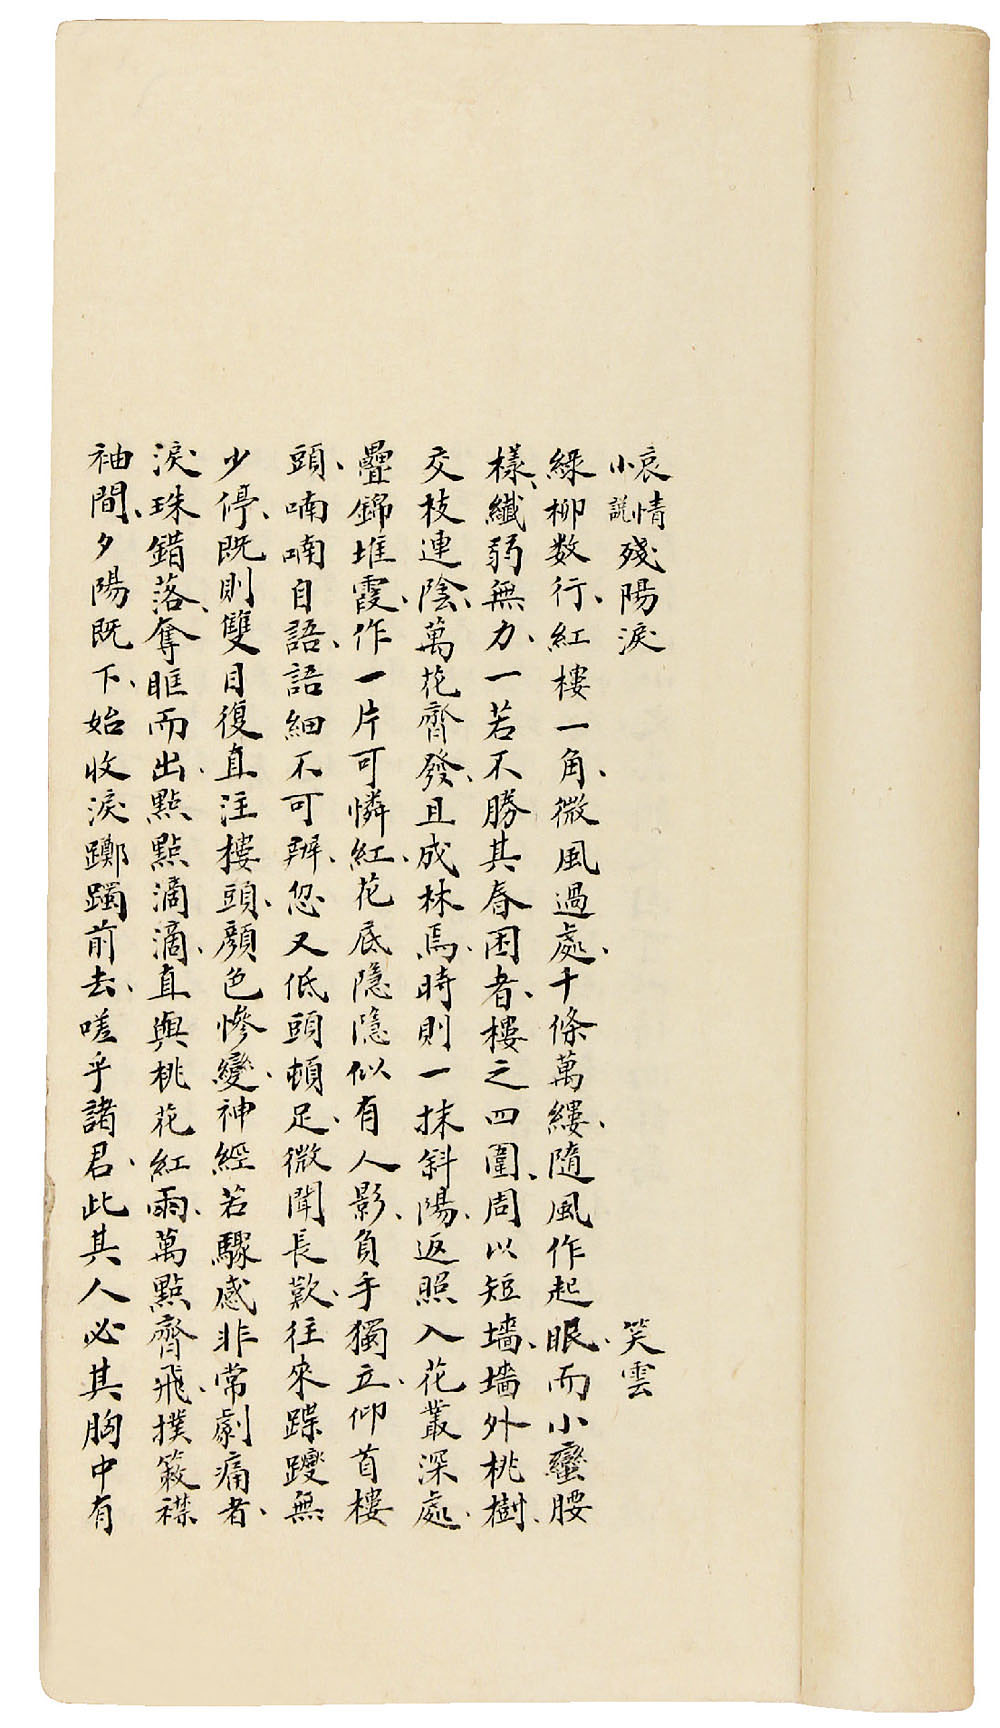 哀情小説 殘陽淚 笑雲
綠柳数行、紅樓一角、微風過處、千條萬縷、隨風作起眠、而小蠻腰
樣、纖弱無力、一若不勝其春困者、樓之四圍、周以短墻、墻外桃樹、
交枝連陰、萬花齊發、且成林焉、時則一抹斜陽、返照入花叢深處、
疊錦堆霞、作一片可憐紅、花底隱隱似有人影、負手獨立、仰首樓
頭、喃喃自語、語細不可辨、忽又低頭頓足、微聞長歎、往來蹀躞無
少停、既則雙目復直注樓頭、顏色慘變、神經若驟感非常劇痛者、
淚珠錯落、奪眶而出、點點滴滴、直與桃花紅雨、萬點齊飛、撲簌襟
袖間、夕陽既下、始收淚躑躅前去、嗟乎諸君、此其人必其胸中有